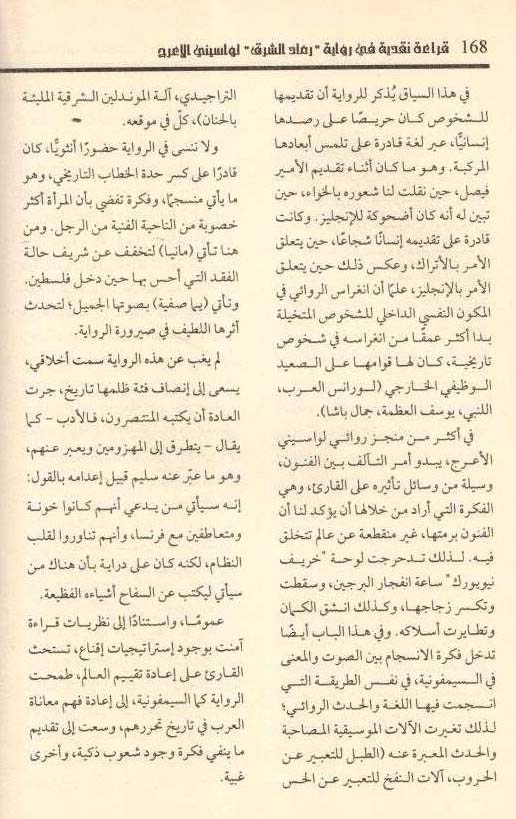 168 قراءة نقدية في رواية "رماد الشرق" لواسيني الأعرج
في هذا السياق يُذكر للرواية أن تقديمها
للشخوص كان حريصًا على رصدها
إنسانيًّا، عبر لغة قادرة على تلمس أبعادها
المركبة. وهو ما كان أثناء تقديم الأمير
فيصل، حين نقلت لنا شعوره بالخواء، حين
تبين له أنه كان أضحوكة للإنجليز. وكانت
قادرة على تقديمه إنسانًا شجاعًا، حين يتعلق
الأمر بالأتراك، وعكس ذلك حين يتعلق
الأمر بالإنجليز، علمًا أن انغراس الروائي في
المكون النفسي الداخلي للشخوص المتخيلة
بدا أكثر عمقًا من انغراسه في شخوص
تاريخية، كان لها قوامها على الصعيد
الوظيفي الخارجي (لورانس العرب،
اللنبي، يوسف العظمة، جمال باشا).
في أكثر من منجز روائي لواسيني
الأعرج، يبدو أمر التآلف بين الفنون،
وسيلة من وسائل تأثيره على القارئ، وهي
الفكرة التي أراد من خلالها أن يؤكد لنا أن
الفنون برمتها، غير منقطعة عن عالم تتخلق
فيه. لذلك تدحرجت لوحة "خريف
نيويورك" ساعة انفجار البرجين، وسقطت
وتكسر زجاجها، وكذلك انشق الكمان
وتطايرت أسلاكه. وفي هذا الباب أيضًا
تدخل فكرة الانسجام بين الصوت والمعنى
في السيمفونية، في نفس الطريقة التي
انسجمت فيها اللغة والحدث الروائي؛
لذلك تغيرت الآلات الموسيقية المصاحبة
والحدث المعبرة عنه (الطبل للتعبير عن
الحروب، آلات النفخ للتعبير عن الحس
التراجيدي، آلة الموندلين الشرقية المليئة
بالحنان)، كلّ في موقعه.
ولا ننسى في الرواية حضورًا أنثويًّا، كان
قادرًا على كسر حدة الخطاب التاريخي، وهو
ما يأتي منسجمًا، وفكرة تفضي بأن المرأة أكثر
خصوبة من الناحية الفنية من الرجل. ومن
هنا تأتي (مانيا) لتخفف عن شريف حالة
الفقد التي أحس بها حين دخل فلسطين.
وتأتي (يما صفية) بصوتها الجميل؛ لتحدث
أثرها اللطيف في صيرورة الرواية.
لم يغب عن هذه الرواية سمت أخلاقي،
يسعى إلى إنصاف فئة ظلمها تاريخ، جرت
العادة أن يكتبه المنتصرون، فالأدب – كما
يقال – يتطرق إلى المهزومين ويعبر عنهم،
وهو ما عبّر عنه سليم قبيل إعدامه بالقول:
إنه سيأتي من يدعي أنهم كانوا خونة
ومتعاطفين مع فرنسا، وأنهم تناوروا لقلب
النظام، لكنه كان على دراية بأن هناك من
سيأتي ليكتب عن السفاح أشياءه الفظيعة.
عمومًا، واستنادًا إلى نظريات قراءة
آمنت بوجود إستراتيجيات إقناع، تستحث
القارئ على إعادة تقييم العالم، طمحت
الرواية كما السيمفونية، إلى إعادة فهم معاناة
العرب في تاريخ تحررهم، وسعت إلى تقديم
ما ينفي فكرة وجود شعوب ذكية، وأخرى
غبية.